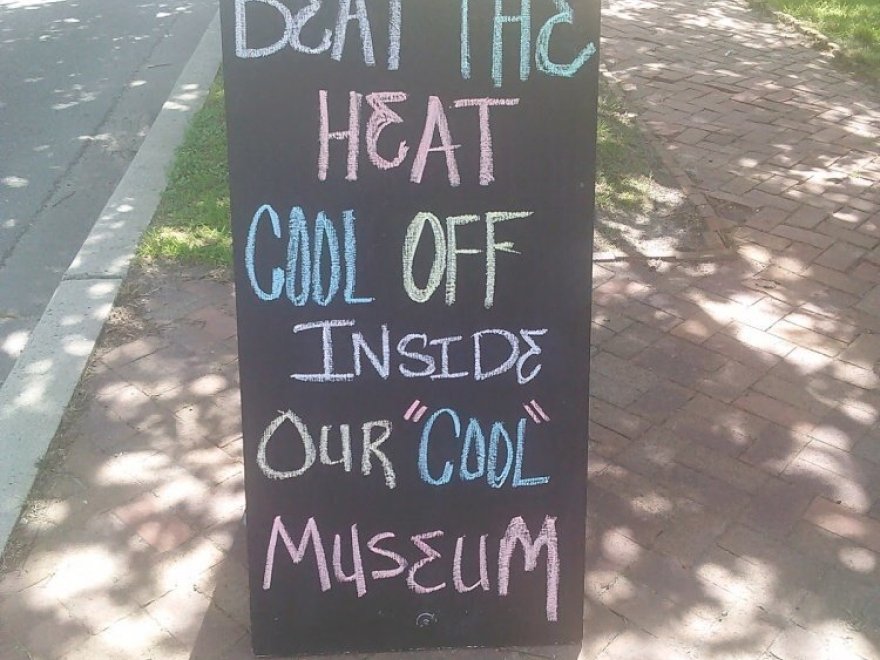 BEAT THE
HEAT
COOL OFF
INSIDE
OUR "COOL"
MUSEUM